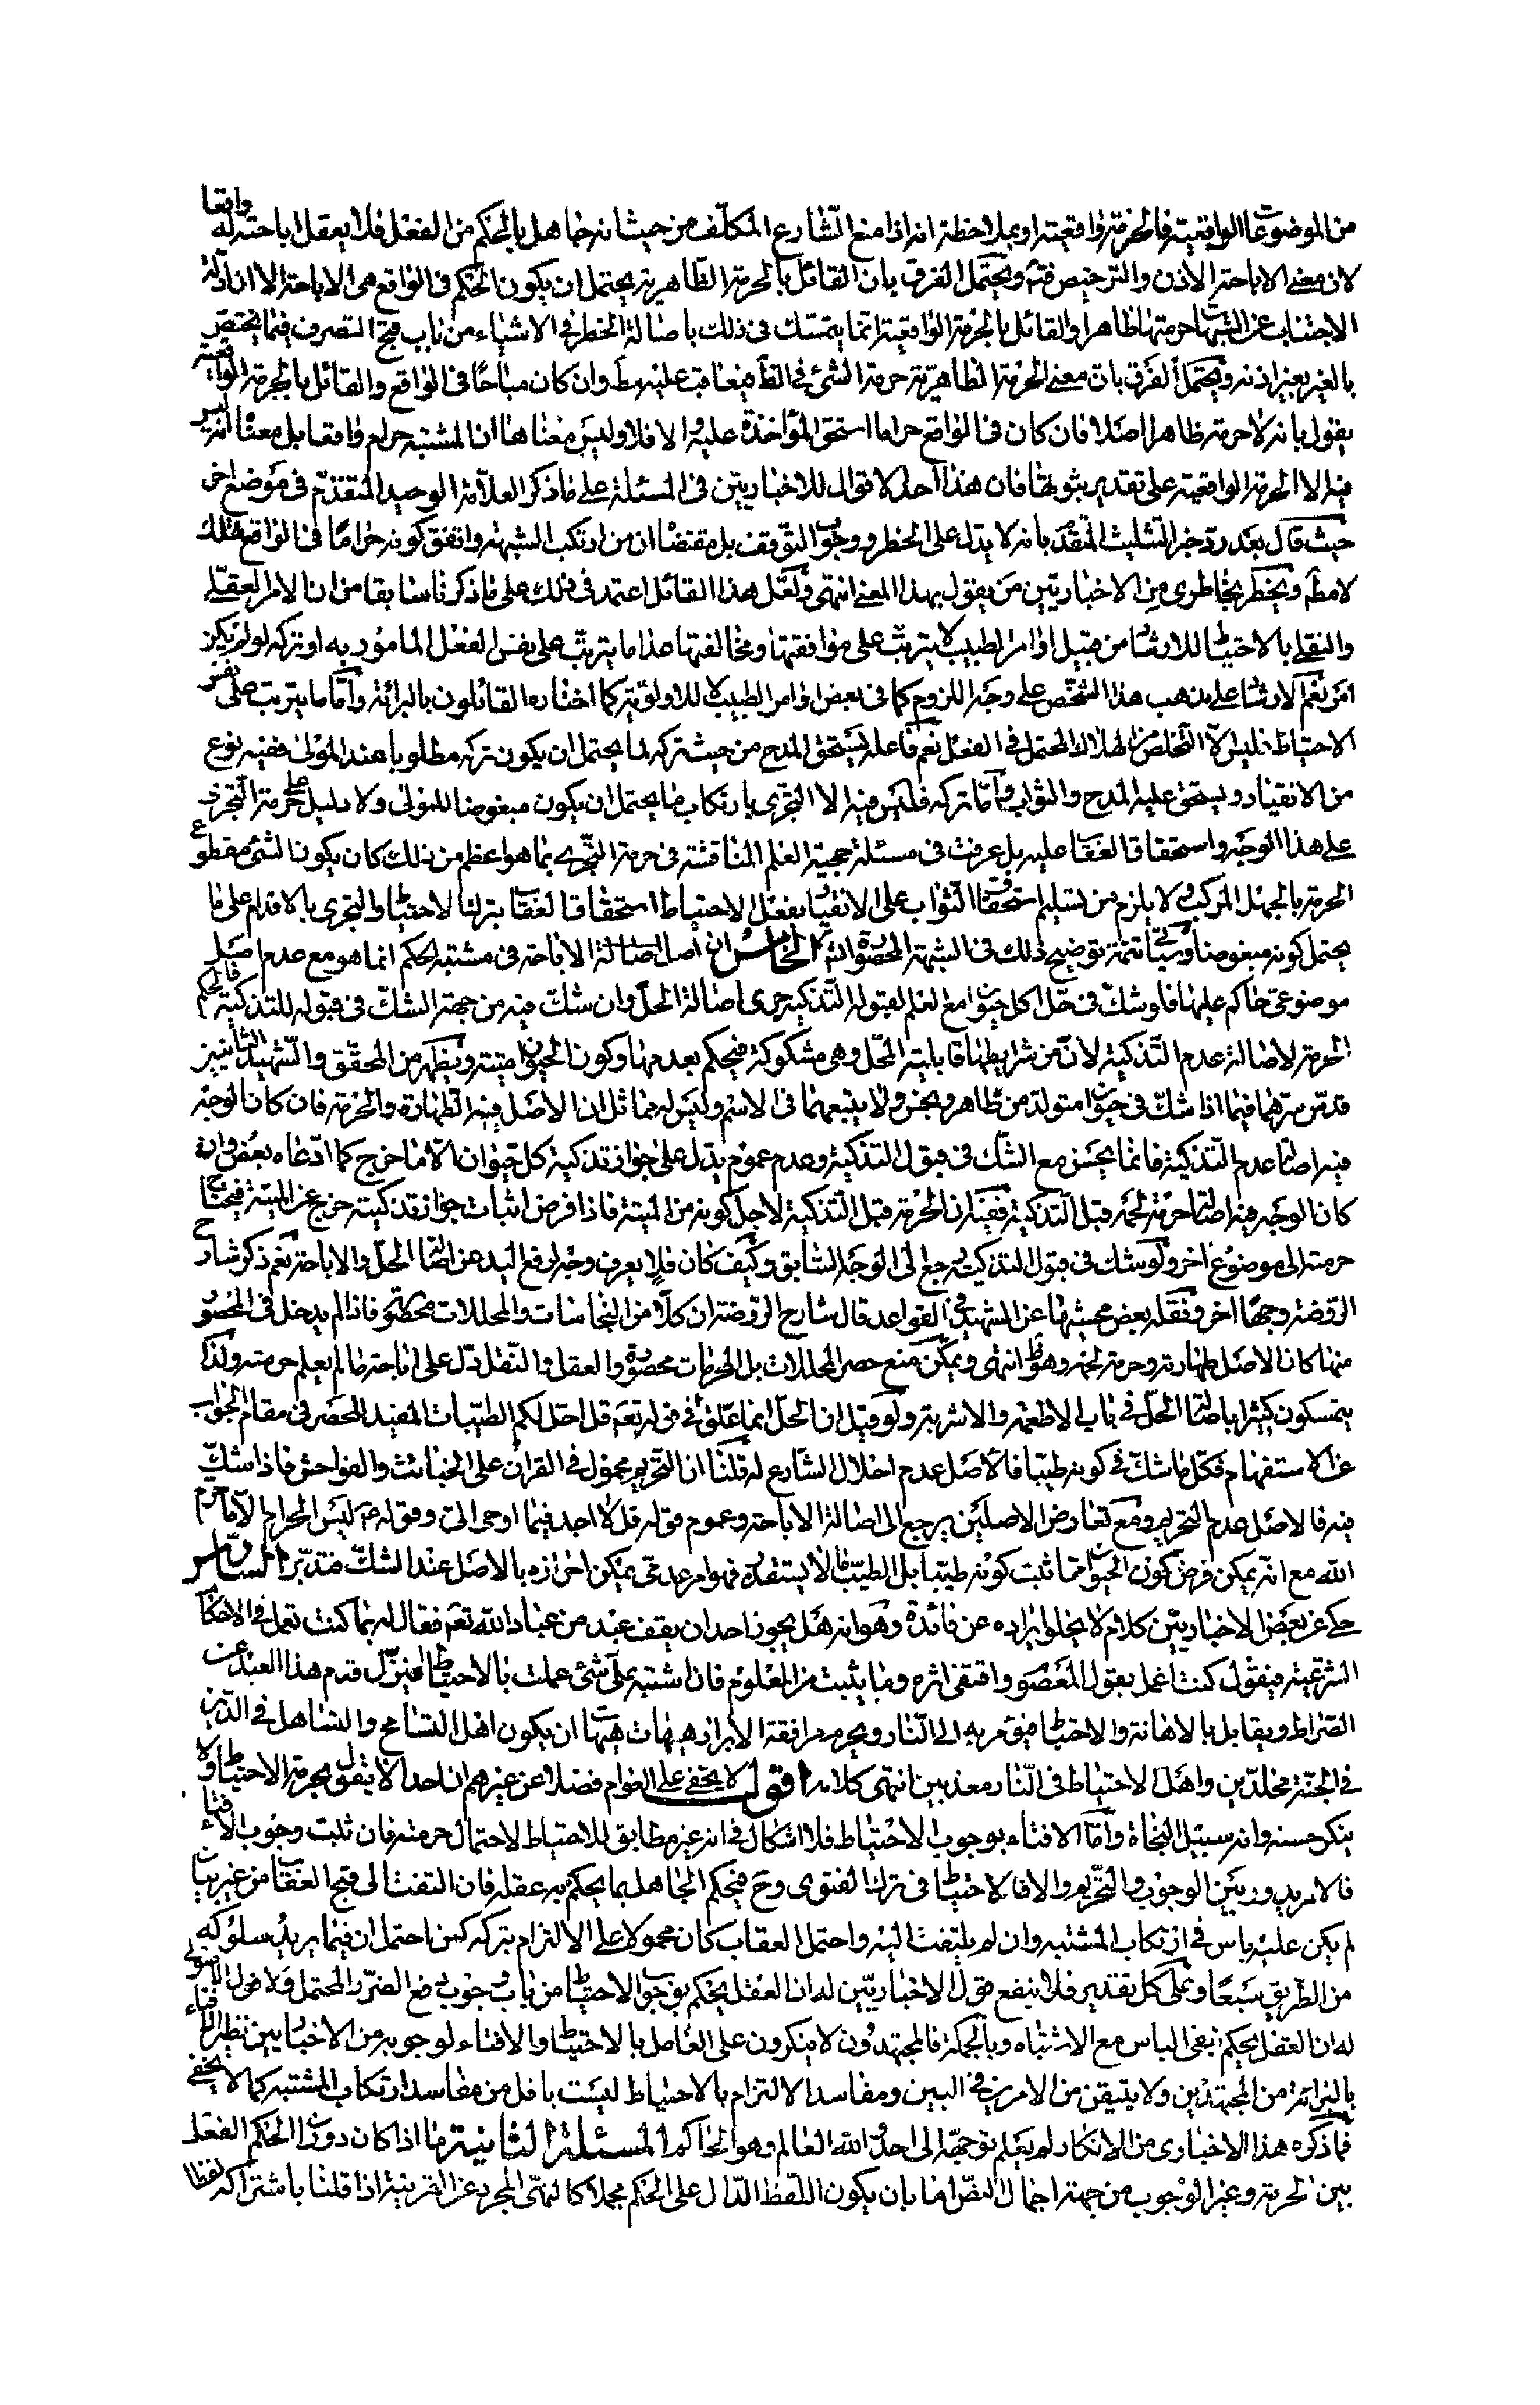 من الموضوعات الواقعية فالحرمة واقعية او بملاحظة انه اذا منع الشارع المكلف من حيث انه جاهل بالحكم من الفعل فلا يعقل اباحته له واقعا
لان معنى الاباحة الاذن والترخيص فتم ويحتمل الفرق بان القائل بالحرمة الظاهرية يحتمل ان يكون الحكم فى الواقع هى الاباحة الا ان ادلة
الاجتناب عن الشبهات حرمتها ظاهرا والقائل بالحرمة الواقعية انما يتمسك فى ذلك باصالة الحظر فى الاشياء من باب قبح التصرف فيما يختص
بالغير بغير اذنه ويحتمل الفرق بان معنى الحرمة الظاهرية حرمة الشئ فى الظ فيعاقب عليه مط وان كان مباحا فى الواقع والقائل بالحرمة الواقعية
يقول بانه لا حرمة ظاهرا اصلا فان كان فى الواقع حراما استحق المؤاخذة عليه والا فلا وليس معناها ان المشتبه حرام واقعا بل معناه انه ليس
فيه الا الحرمة الواقعية على تقدير ثبوتها فان هذا احد الاقوال للاخباريين فى المسئلة على ما ذكر العلامة الوحيد المتقدم فى موضع اخر
حيث قال بعد رد خبر التثليث المتقدم بانه لا يدل على الحظر ووجوب التوقف بل مقتضاه ان من ارتكب الشبهة واتفق كونه حراما فى الواقع هلك
لا مط ويخطر بخاطرى من الاخباريين من يقول بهذا المعنى انتهى ولعل هذا القائل اعتمد فى ذلك على ما ذكرنا سابقا من ان الامر العقلى
والنقلى بالاحتياط للارشاد من قبيل اوامر الطبيب لا يترتب على موافقتها ومخالفتها عدا ما يترتب على نفس الفعل المامور به او تركه لو لم يكن
امر نعم الارشاد على مذهب هذا الشخص على وجه اللزوم كما فى بعض اوامر الطبيب لا للاولوية كما اختاره القائلون بالبرائة واما ما يترتب على نفس
الاحتياط فليس الا التخلص من الهلاك المحتمل فى الفعل نعم فاعله يستحق المدح من حيث تركه لما يحتمل ان يكون تركه مطلوبا عند المولى ففيه نوع
من الانقياد ويستحق عليه المدح والثواب واما تركه فليس فيه الا التجرى بارتكاب ما يحتمل ان يكون مبغوضا للمولى ولا دليل على حرمة التجرى
على هذا الوجه واستحقاق العقاب عليه بل عرفت فى مسئلة حجية العلم المناقشة فى حرمة التجرى بما هو اعظم من ذلك كان يكون الشئ مقطوع
الحرمة بالجهل المركب ولا يلزم من تسليم استحقاق الثواب على الانقياد بفعل الاحتياط استحقاق العقاب بترك الاحتياط والتجرى بالاقدام على ما
يحتمل كونه مبغوضا وسياتى تتمة توضيح ذلك فى الشبهة المحصورة انش الخامس ان اصالة الاباحة فى مشتبه الحكم انما هو مع عدم اصل
موضوعى حاكم عليها فلو شك فى حل اكل حيوان مع العلم بقبوله التذكية جرى اصالة الحل وان شك فيه من جهة الشك فى قبوله للتذكية فالحكم
الحرمة لاصالة عدم التذكية لان من شرايطها قابلية المحل وهى مشكوكة فيحكم بعدمها وكون الحيوان ميتة ويظهر من المحقق والشهيد الثانيين
قدس سرهما فيما اذا شك فى حيوان متولد من طاهر ونجس ولا يتبعهما فى الاسم وليس له مماثل ان الاصل فيه الطهارة والحرمة فان كان الوجه
فيه اصالة عدم التذكية فانما يحسن مع الشك فى قبول التذكية وعدم عموم يدل على جواز تذكية كل حيوان الا ما خرج كما ادعاه بعض وان
كان الوجه فيه اصالة حرمة لحمه قبل التذكية ففيه ان الحرمة قبل التذكية لاجل كونه من الميتة فاذا فرض اثبات جواز تذكيته خرج عن الميتة فيحتاج
حرمته الى موضوع اخر ولو شك فى قبول التذكية رجع الى الوجه السابق وكيف كان فلا يعرف وجه لرفع اليد عن اصالة الحل والاباحة نعم ذكر شارح
الروضة وجها اخر ونقله بعض محشيها عن الشهيد فى القواعد قال شارح الروضة ان كلا من النجاسات والمحللات محصورة فاذا لم يدخل فى المحصور
منها كان الاصل طهارته وحرمة لحمه وهو ظ انتهى ويمكن منع حصر المحللات بل المحرمات محصورة والعقل والنقل دل على اباحة ما لم يعلم حرمته ولذا
يتمسكون كثيرا باصالة الحل فى باب الاطعمة والاشربة ولو قيل ان الحل انما علق فى قوله تعم قل احل لكم الطيبات المفيد للحصر فى مقام الجواب
عن الاستفهام فكل ما شك فى كونه طيبا فالاصل عدم احلال الشارع له قلنا ان التحريم محمول فى القران على الخبائث والفواحش فاذا شك
فيه فالاصل عدم التحريم ومع تعارض الاصلين يرجع الى اصالة الاباحة وعموم قوله قل لا اجد فيما اوحى الى وقوله ع ليس الحرام الا ما حرم
الله مع انه يمكن فرض كون الحيوان مما ثبت كونه طيبا بل الطيب ما لا يستقذر فهو امر عدمى يمكن احرازه بالاصل عند الشك فتدبر السادس
حكى عن بعض الاخباريين كلام لا يخلوا ايراده عن فائدة وهو انه هل يجوز احد ان يقف عبد من عباد الله تعم فقال له بما كنت تعمل فى الاحكام
الشرعية فيقول كنت اعمل بقول المعصوم واقتفى اثره وما يثبت من المعلوم فان اشتبه على شئ عملت بالاحتياط افيزل قدم هذا العبد عن
الصراط ويقابل بالاهانة والاحباط فيؤمر به الى النار ويحرم مرافقة الابرار هيهات هيهات ان يكون اهل التسامح والتساهل فى الدين
فى الجنة مخلدين واهل الاحتياط فى النار معذبين انتهى كلامه اقول لا يخفى على العوام فضلا عن غيرهم ان احدا لا يقول بحرمة الاحتياط ولا
ينكر حسنه وانه سبيل النجاة واما الافتاء بوجوب الاحتياط فلا اشكال فى انه غير مطابق للاحتياط لاحتمال حرمته فان ثبت وجوب الافتاء
فالامر يدور بين الوجوب والتحريم والا فالاحتياط فى ترك الفتوى وح فيحكم الجاهل بما يحكم به عقله فان التفت الى قبح العقاب من غير بيان
لم يكن عليه باس فى ارتكاب المشتبه وان لم يلتفت اليه واحتمل العقاب كان مجبولا على الالتزام بتركه كمن احتمل ان فيما يريد سلوكه
من الطريق سبعا وعلى كل تقدير فلا ينفع قول الاخباريين له ان العقل يحكم بوجوب الاحتياط من باب وجوب دفع الضرر المحتمل ولا قول الاصولى
له ان العقل يحكم بنفى الباس مع الاشتباه وبالجملة فالمجتهدون لا ينكرون على العامل بالاحتياط والافتاء لوجوبه من الاخباريين نظير الافتاء
بالبرائة من المجتهدين ولا يتيقن من الامرين فى البين ومفاسد الالتزام بالاحتياط ليست باقل من مفاسد ارتكاب المشتبه كما لا يخفى
فما ذكره هذا الاخبارى من الانكار لم يعلم توجهه الى احد والله العالم وهو الحاكم المسئلة الثانية ما اذا كان دوران الحكم الفعلى
بين الحرمة وغير الوجوب من جهة اجمال النص اما بان يكون اللفظ الدال على الحكم مجملا كالنهى المجرد عن القرينة اذا قلنا باشتراكه لفظا